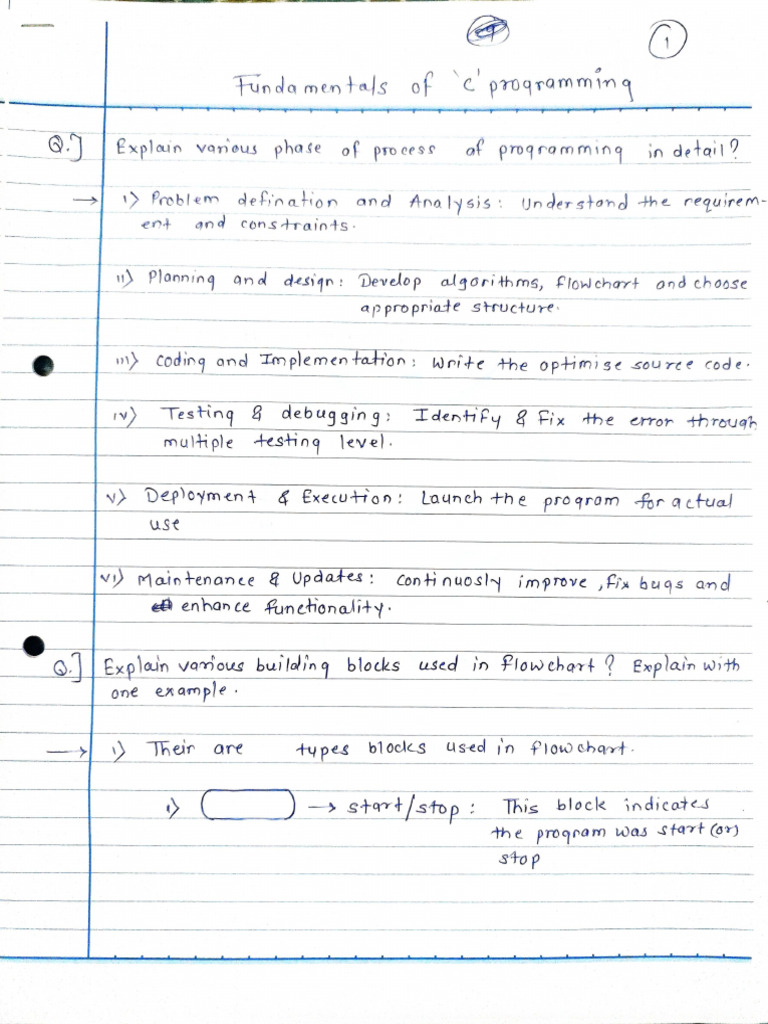 1
Fundamentals of 'c' programming
Q.] Explain various phase of process of programming in detail?
→ i) Problem defination and Analysis: Understand the requirem-
ent and constraints.
ii) Planning and design: Develop algorithms, flowchart and choose
appropriate structure.
iii) Coding and Implementation: Write the optimise source code.
iv) Testing & debugging: Identify & Fix the error through
multiple testing level.
v) Deployment & Execution: Launch the program for actual
use
vi) Maintenance & Updates: Continuosly improve, fix bugs and
enhance functionality.
Q.] Explain various building blocks used in flowchart? Explain with
one example.
→ i) Their are types blocks used in flowchart.
i) → start/stop: This block indicates
the program was start (or)
stop